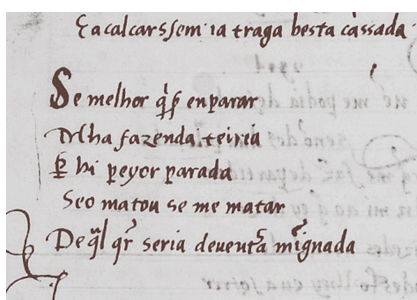 Eacalcarssem ia traga besta cassada
Se melhor q̃ p̃ enparar
Mha fazenda teiria
ꝑ hi peyor parada
Seo matou se me matar
De q̃l qr̃ seria deuenta mẽg̃nada